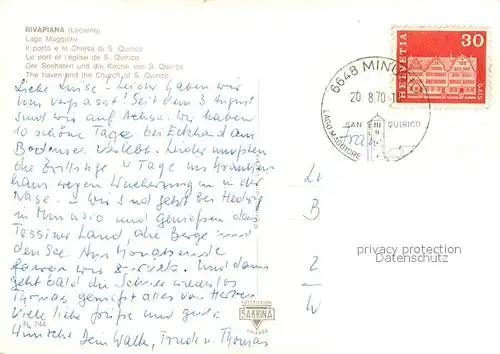 RIVAPIANA (Locarno)
Lago Maggiore
Il porto e la Chiesa di S. Quirico
Le port et l'église de S. Quirico
Der Seehafen und die Kirche von S. Quirico
The haven and the Church of S. Quirico
HELVETIA
30
GAIS
6648 MINUSIO
20.8.70-1
SAN QUIRICO
LAGO MAGGIORE
Liebe Luise. Leider haben wir
uns verpasst! Seit dem 3 August
sind wir auf Achse. Wir haben
10 schöne Tage bei Eckhard am
Bodensee verlebt. Leider mussten
die Zwillinge 4 Tage ins Kranken-
haus wegen Wucherungen in der
Nase. Wir sind jetzt bei Hedwig
in Minusio und geniessen das
Tessiner Land, die Berge und
den See. Am Monatsende
fahren wir zurück. Und dann
geht bald die Schule wieder los
Thomas geniesst alles von Herzen
Viele liebe Grüsse und gute
Wünsche Dein Walter, Trude u. Thomas
B
2
W
privacy protection
Datenschutz
SABRINA
N. 744